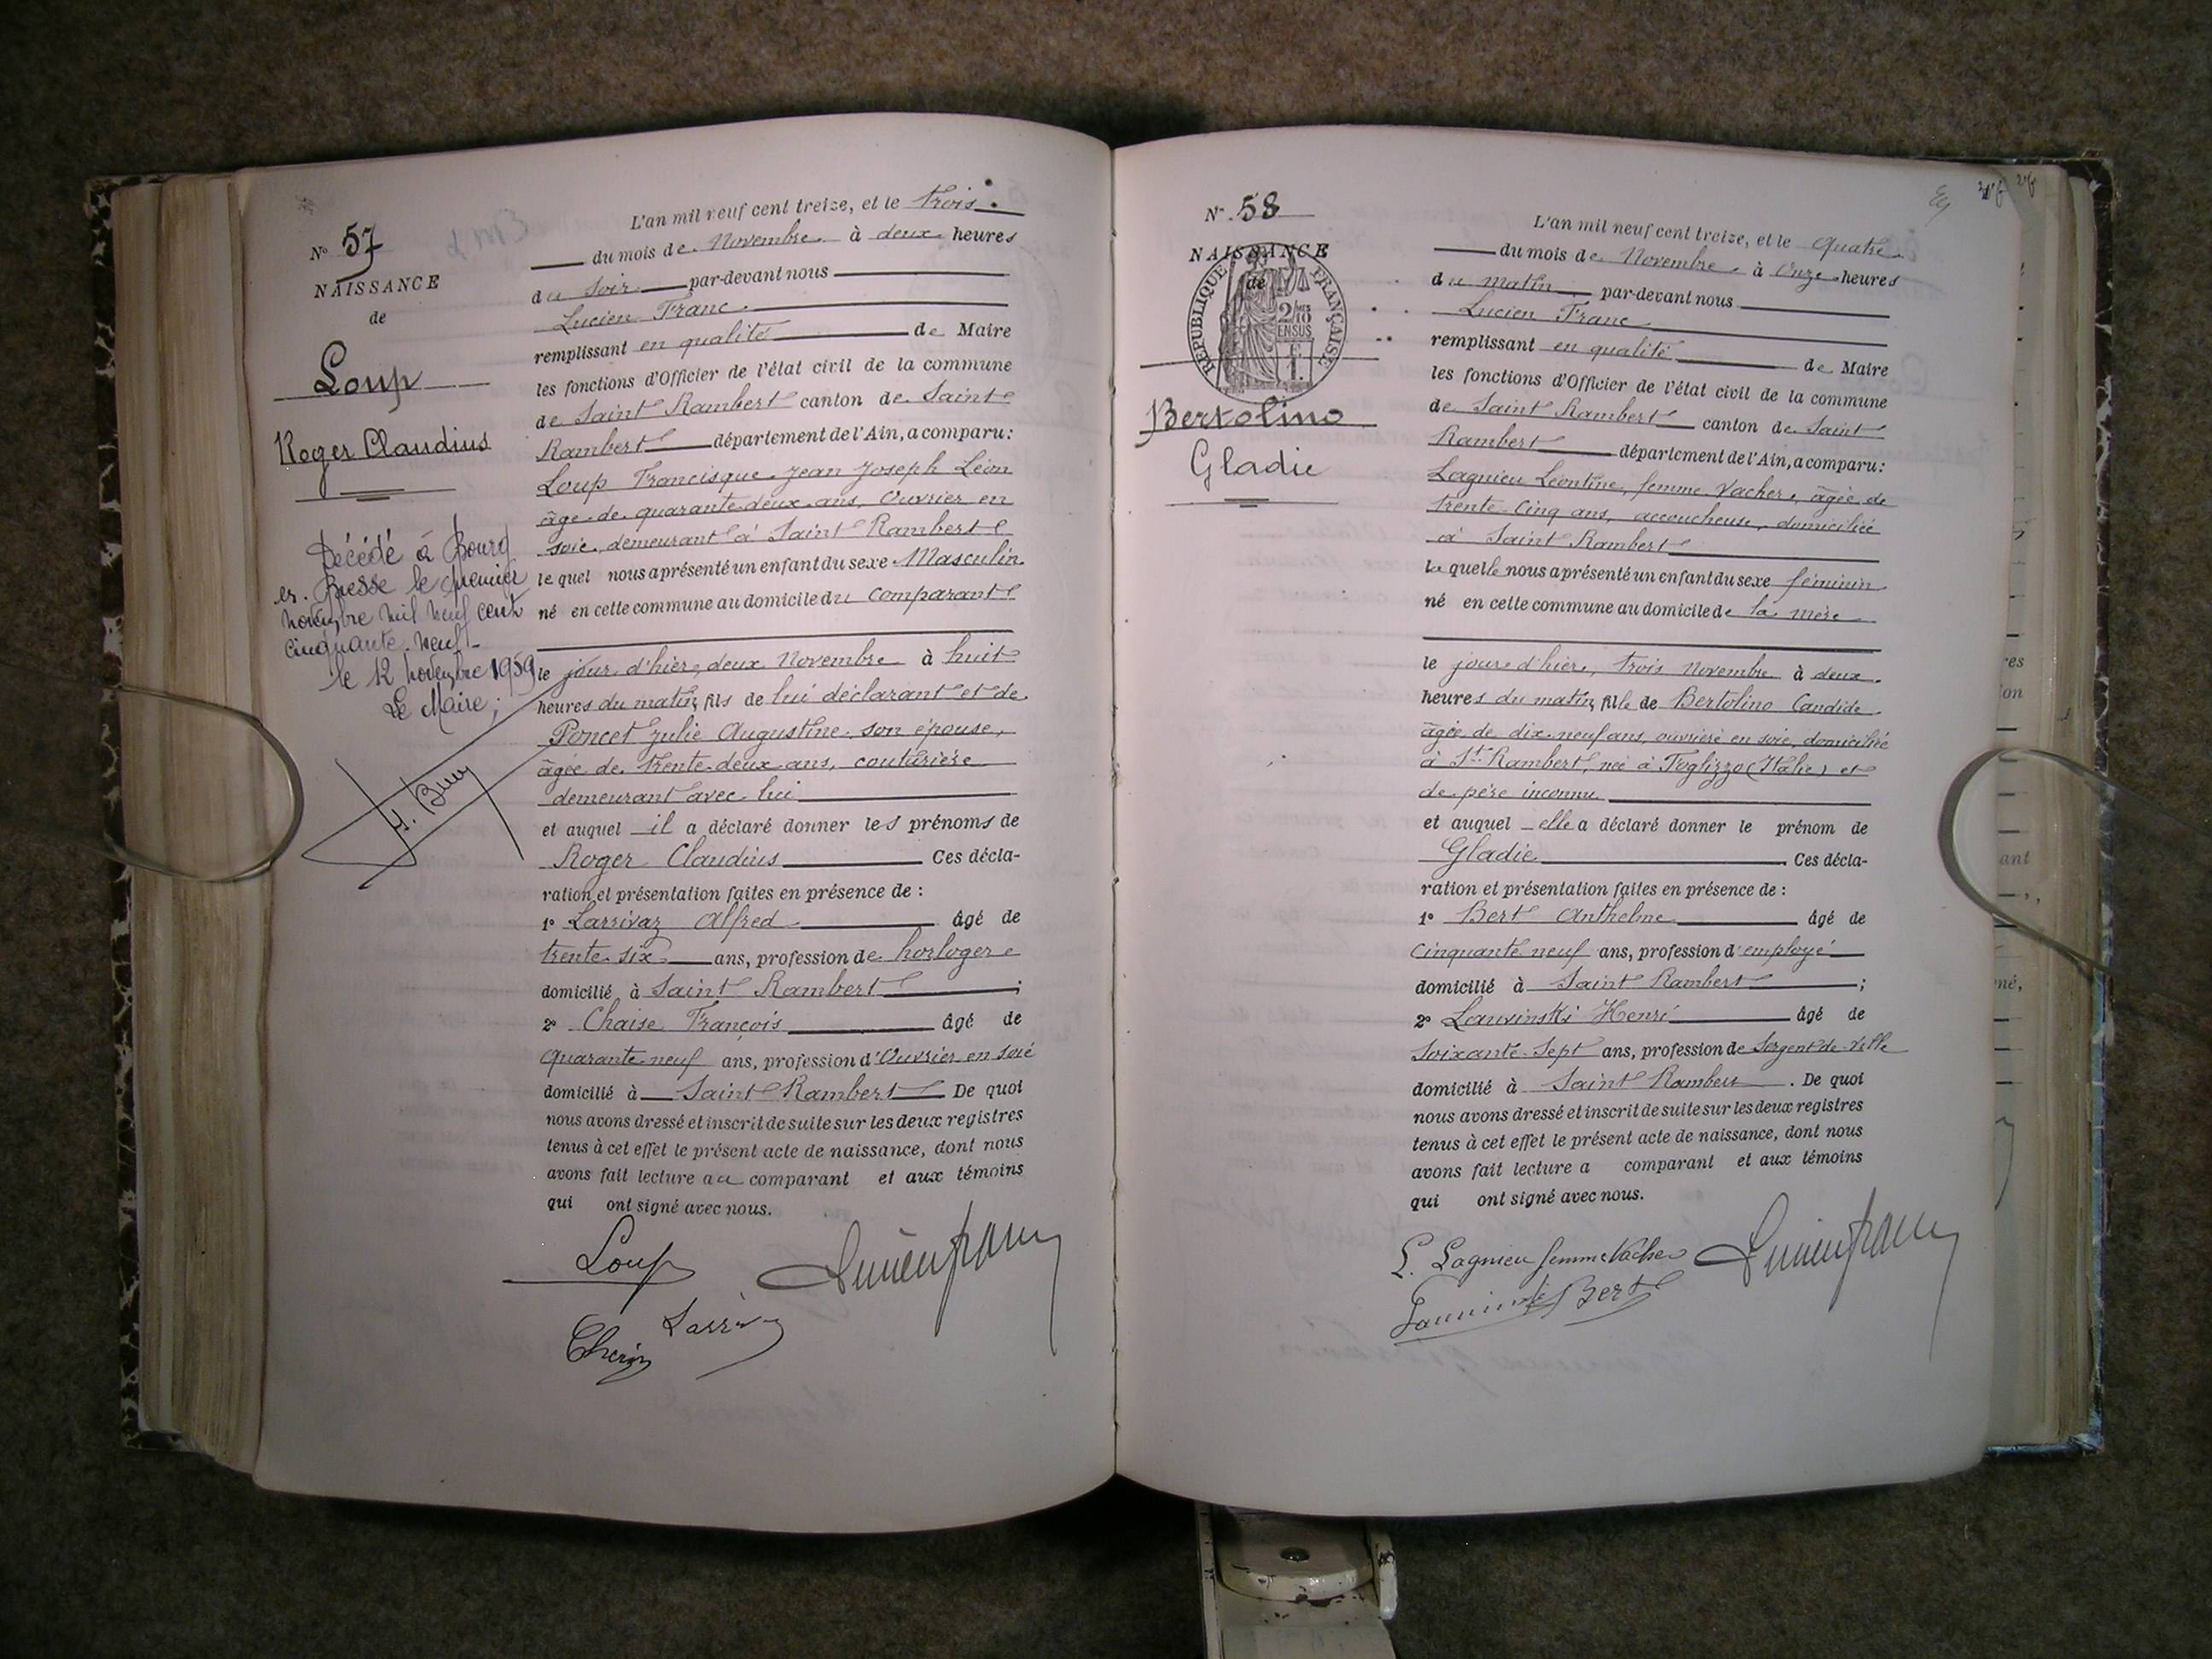 N° 57
NAISSANCE
de
Loup
Roger Claudius
Décédé à Bourg
en Bresse le premier
novembre mil neuf cent
cinquante neuf.
le 12 novembre 1959
Le Maire;
L'an mil neuf cent treize, et le trois
du mois de Novembre à deux heures
du soir par-devant nous
Lucien Franc
remplissant en qualité de Maire
les fonctions d'Officier de l'état civil de la commune
de Saint Rambert canton de Saint
Rambert département de l'Ain, a comparu:
Loup Francisque Jean Joseph Léon
âgé de quarante deux ans, Ouvrier en
soie, demeurant à Saint Rambert
lequel nous a présenté un enfant du sexe Masculin
né en cette commune au domicile du comparant
le jour d'hier, deux Novembre à huit
heures du matin, fils de lui déclarant et de
Poncet Julie Augustine son épouse,
âgée de trente-deux ans, couturière
demeurant avec lui
et auquel il a déclaré donner les prénoms de
Roger Claudius Ces décla-
ration et présentation faites en présence de :
1° Larrivaz Alfred âgé de
trente six ans, profession de horloger
domicilié à Saint Rambert ;
2° Chaise François âgé de
quarante neuf ans, profession d'Ouvrier en soie
domicilié à Saint Rambert De quoi
nous avons dressé et inscrit de suite sur les deux registres
tenus à cet effet le présent acte de naissance, dont nous
avons fait lecture au comparant et aux témoins
qui ont signé avec nous.
Loup Lucien Franc
N° 58
NAISSANCE
de
RÉPUBLIQUE FRANÇAISE
2/10
EN SUS
Bertolino
Gladie
L'an mil neuf cent treize, et le Quatre
du mois de Novembre à Onze heures
du matin par-devant nous
Lucien Franc
remplissant en qualité de Maire
les fonctions d'Officier de l'état civil de la commune
de Saint Rambert canton de Saint
Rambert département de l'Ain, a comparu:
Lagnieu Léontine, femme Vacher, âgée de
trente cinq ans, accoucheuse, domiciliée
à Saint Rambert
laquelle nous a présenté un enfant du sexe féminin
né en cette commune au domicile de la mère
le jour d'hier, trois novembre à deux
heures du matin, fille de Bertolino Candide
âgée de dix-neuf ans, ouvrière en soie, domiciliée
à St Rambert, née à Foglizzo (Italie) et
de père inconnu
et auquel elle a déclaré donner le prénom de
Gladie . Ces décla-
ration et présentation faites en présence de :
1° Bert Anthelme âgé de
cinquante neuf ans, profession d'employé
domicilié à Saint Rambert ;
2° Lauvinski Henri âgé de
soixante-sept ans, profession de sergent de ville
domicilié à Saint Rambert . De quoi
nous avons dressé et inscrit de suite sur les deux registres
tenus à cet effet le présent acte de naissance, dont nous
avons fait lecture a comparant et aux témoins
qui ont signé avec nous.
L. Lagnieu femme Vacher Lucien Franc
Bert